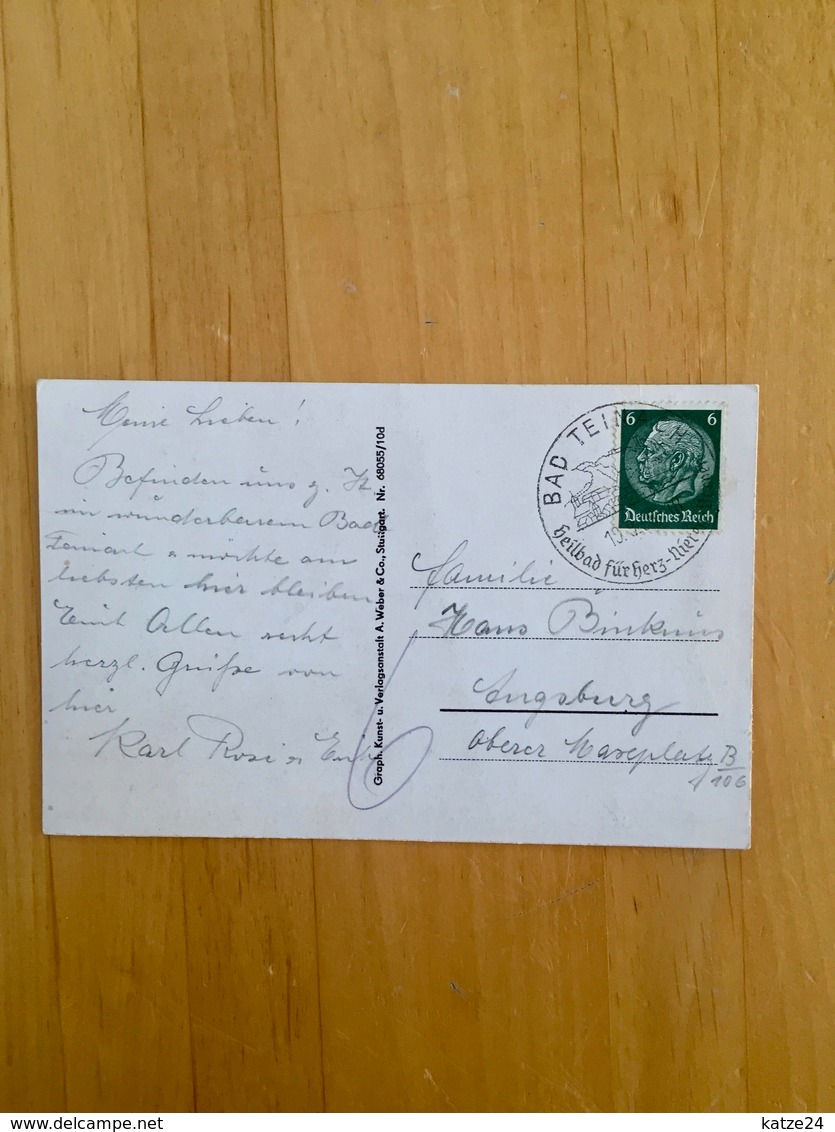 Meine Lieben!
Befinden uns z. Zt
im wunderbaren Bad
Teinach u möchte am
liebsten hier bleiben
Allen recht
herzl. Grüße von
hier
Karl Rosi u
Graph. Kunst- u. Verlagsanstalt A. Weber & Co., Stuttgart. Nr. 68055/10d
BAD TEIN
10.
Heilbad für Herz-Nier
6 6
Deutsches Reich
Familie
Hans
Augsburg
Oberer B
/106
6
katze24